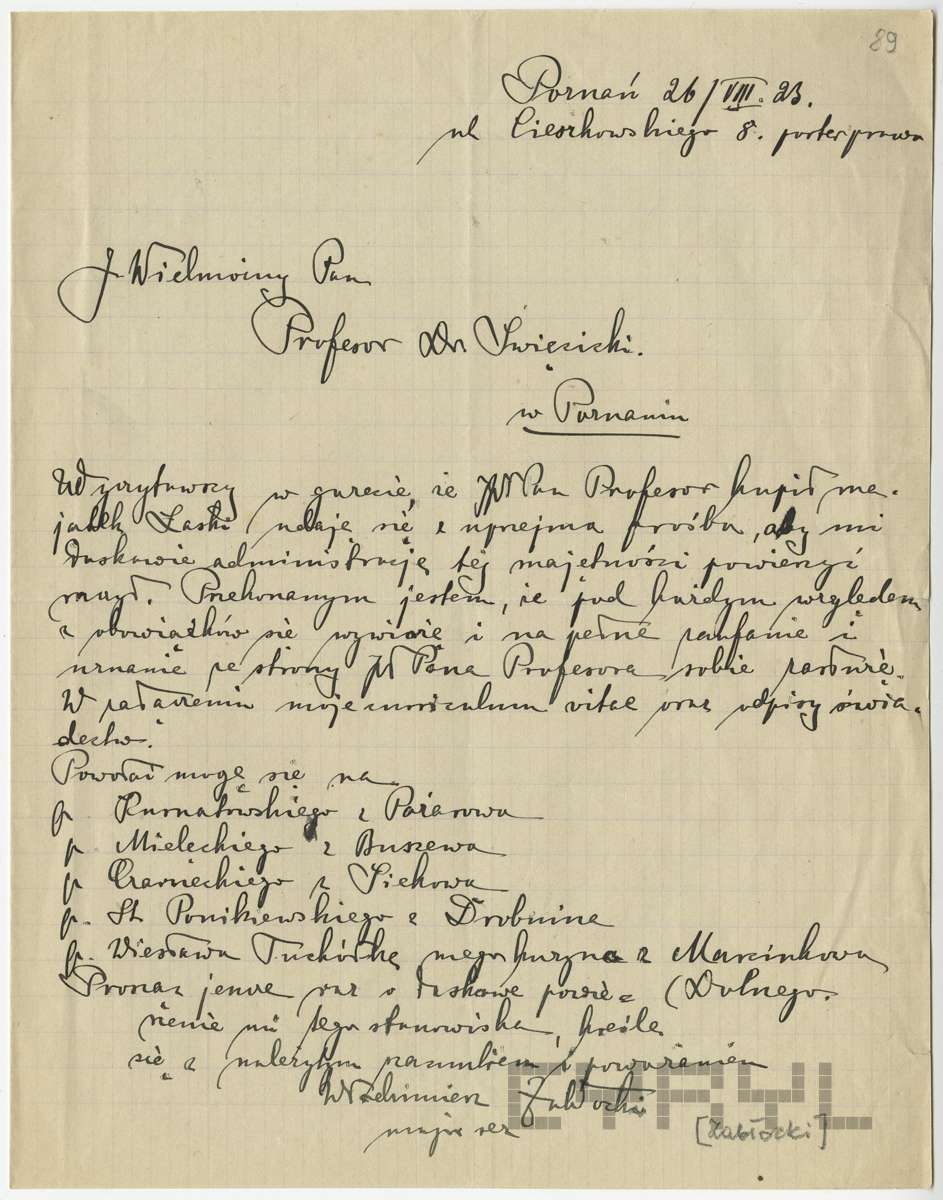 89
Poznań 26/VIII. 23.
ul Cieszkowskiego 8. parter prawo
J. Wielmożny Pan
Profesor Dr. Święcicki.
w Poznaniu
Wyczytawszy w gazecie, że JW Pan Profesor kupił ma-
jątek Łaski udaję się z uprzejmą prośbą, aby mi
łaskawie administrację tej majętności powierzyć
raczył. Przekonanym jestem, że pod każdym względem
z obowiązków się wywiążę i na pełne zaufanie i
uznanie ze strony JW Pana Profesora sobie zasłużę.
W załączeniu moje curriculum vitae oraz odpisy świa-
dectw.
Powołać mogę się na
p. Kurnatowskiego z Pożarowa
p Mieleckiego z Buszewa
p Czarneckiego z Siekowa
p. St Ponikiewskiego z Drobnina
p. Wiesława Tuchółkę mego kuzyna z Marcinkowa
Prosząc jeszcze raz o łaskawe powie= (Dolnego.
rzenie mi tego stanowiska, kreślę
się z należytym szacunkiem i poważaniem
Włodzimierz Zabłocki
major rez
[Zabłocki]
EYRYL